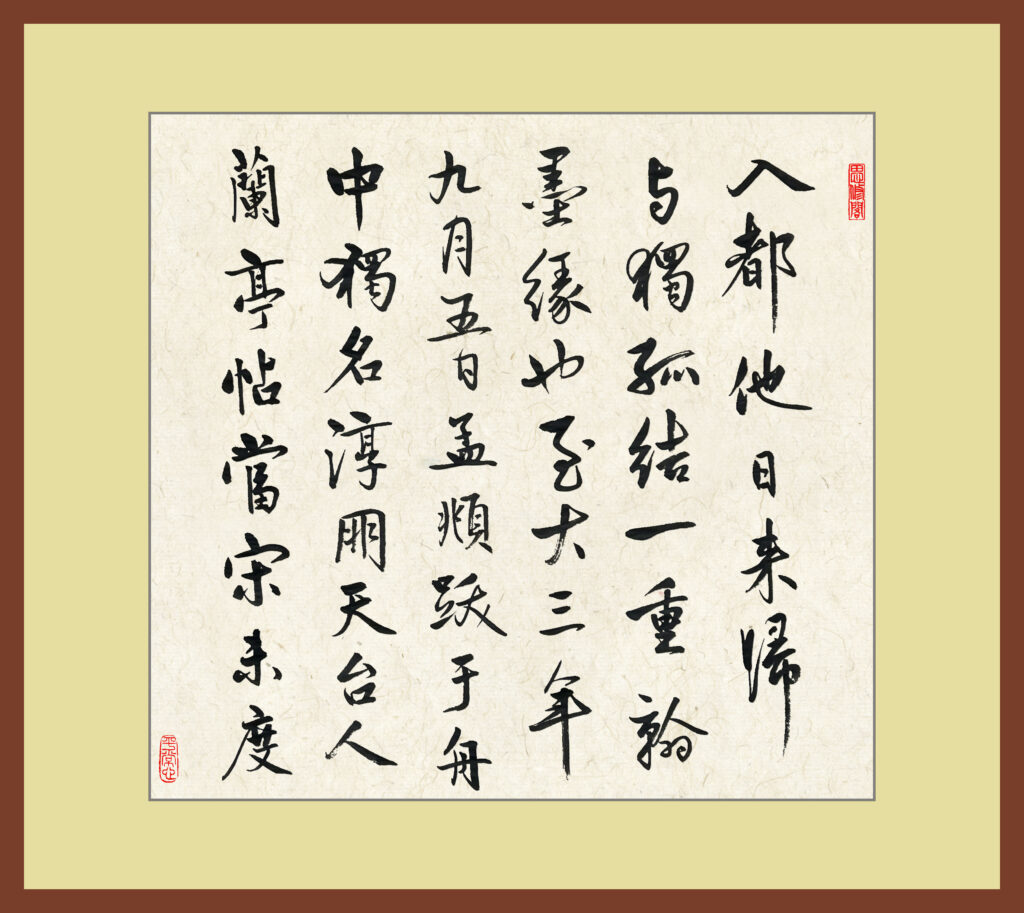 入都他日来歸
与獨孤結一重翰
墨緣也至大三年
九月五日孟頫跋于舟
中獨名淳朋天台人
蘭亭帖當宋未度
平常心